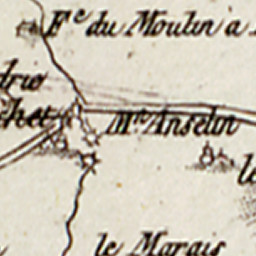 Fe du Moulin à
drio
chet
Mt Anselin
le
le Marais